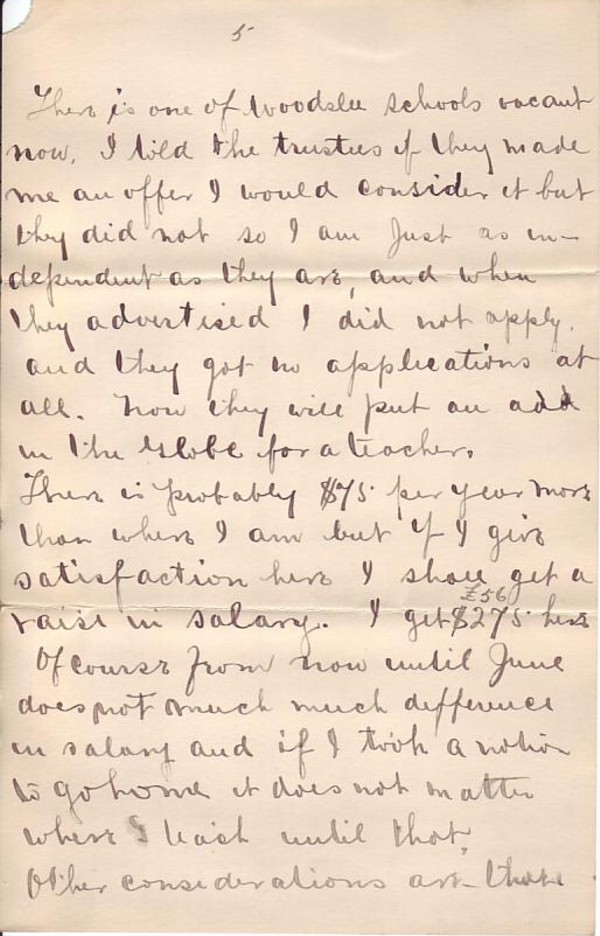 5
There is one of Woodslee schools vacant
now. I told the trustees if they made
me an offer I would consider it but
they did not so I am just as in-
dependent as they are, and when
they advertised I did not apply.
and they got no applications at
all. Now they will put an add
in the Globe for a teacher.
There is probably $75 per year more
than where I am but if I give
satisfaction here I shall get a
£56
raise in salary. I get $275 here
Of course from now until June
does not much much difference
in salary and if I took a notion
to go home it does not matter
where I teach until that.
Other considerations are that